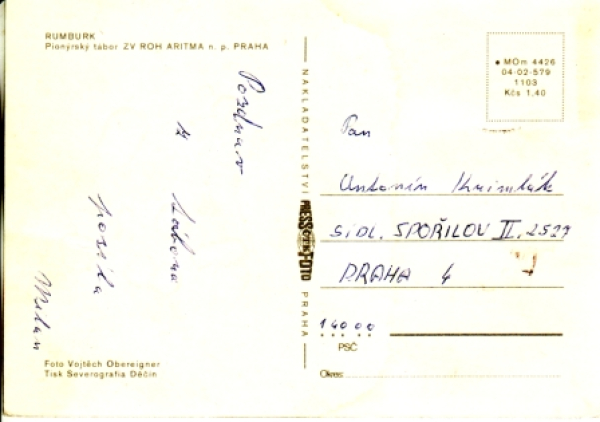 RUMBURK
Pionýrský tábor ZV ROH ARITMA n. p. PRAHA
Pozdrav
z
tábora
posílá
Milan
Foto Vojtěch Obereigner
Tisk Severografia Děčín
NAKLADATELSTVÍ PRESSFOTO PRAHA
MOm 4426
04-02-579
1103
Kčs 1,40
Pan
Antonín
SÍDL. SPOŘILOV II. 2527
PRAHA 4
14000
PSČ
Okres